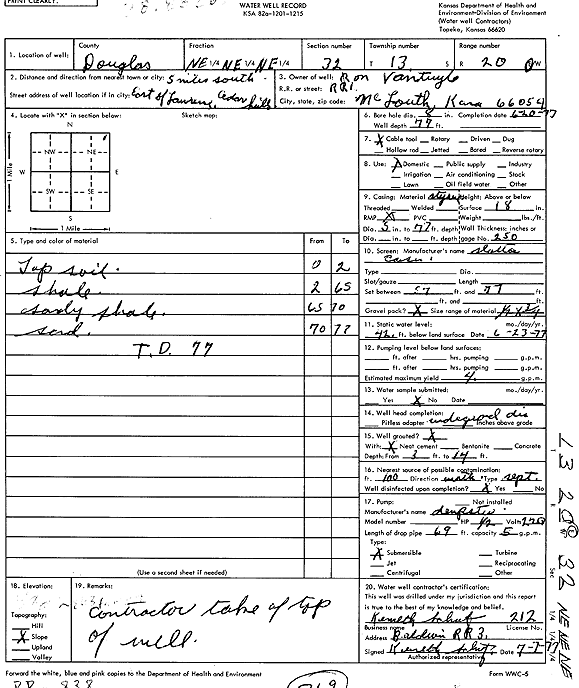 PRINT CLEARLY.
WATER WELL RECORD
KSA 82a-1201-1215
Kansas Department of Health and
Environment-Division of Environment
(Water well Contractors)
Topeka, Kansas 66620
1. Location of well:
County
Douglas
Fraction
NE 1/4 NE 1/4 NE 1/4
Section number
32
Township number
T 13 S
Range number
R 20 W
2. Distance and direction from nearest town or city: 5 miles south
Street address of well location if in city: East of Lawrence, Cedar hills
3. Owner of well: Ron Vantuyle
R.R. or street: RR1.
City, state, zip code: McLouth, Kans 66054
4. Locate with "X" in section below:
Sketch map:
N
NW NE
W E
SW SE
S
1 Mile
1 Mile
5. Type and color of material
From To
Top soil. 0 2
shale 2 65
sandy shale. 65 70
sand. 70 77
T.D. 77
(Use a second sheet if needed)
6. Bore hole dia. 8 in. Completion date 6-20-77
Well depth 77 ft.
7. X Cable tool Rotary Driven Dug
Hollow rod Jetted Bored Reverse rotary
8. Use: X Domestic Public supply Industry
Irrigation Air conditioning Stock
Lawn Oil field water Other
9. Casing: Material Height: Above or below
Threaded Welded Surface 18 in.
RMP X PVC Weight lbs./ft.
Dia. 5 in. to 77 ft. depth Wall Thickness: inches or
Dia. in. to ft. depth gage No. 250
10. Screen: Manufacturer's name
Type Dia.
Slot/gauze Length
Set between 57 ft. and 77 ft.
ft. and ft.
Gravel pack? X Size range of material
11. Static water level: mo./day/yr.
42 ft. below land surface Date 6-23-77
12. Pumping level below land surfaces:
ft. after hrs. pumping g.p.m.
ft. after hrs. pumping g.p.m.
Estimated maximum yield 4. g.p.m.
13. Water sample submitted: mo./day/yr.
Yes X No Date
14. Well head completion:
Pitless adapter Inches above grade
15. Well grouted? X
With: X Neat cement Bentonite Concrete
Depth: From 3 ft. to 14 ft.
16. Nearest source of possible contamination:
ft. 100 Direction Type sept.
Well disinfected upon completion? X Yes No
17. Pump: Not installed
Manufacturer's name dempster
Model number HP 1/2 Volts 220
Length of drop pipe 69 ft. capacity 5 g.p.m.
Type:
X Submersible Turbine
Jet Reciprocating
Centrifugal Other
18. Elevation:
Topography:
Hill
X Slope
Upland
Valley
19. Remarks:
contractor take of top
of well.
20. Water well contractor's certification:
This well was drilled under my jurisdiction and this report
is true to the best of my knowledge and belief.
Kenneth 212
Business name License No.
Address Baldwin RR3.
Signed Kenneth Date 7-7-77
Authorized representative
Forward the white, blue and pink copies to the Department of Health and Environment
Form WWC-5
13 20 32 NE NE NE
T R Sec 1/4 1/4 1/4